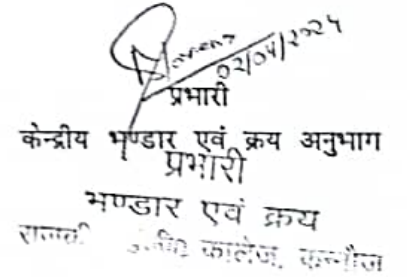 02/04/2024
प्रभारी
केन्द्रीय भण्डार एवं क्रय अनुभाग
प्रभारी
भण्डार एवं क्रय
कालेज, कन्नौज